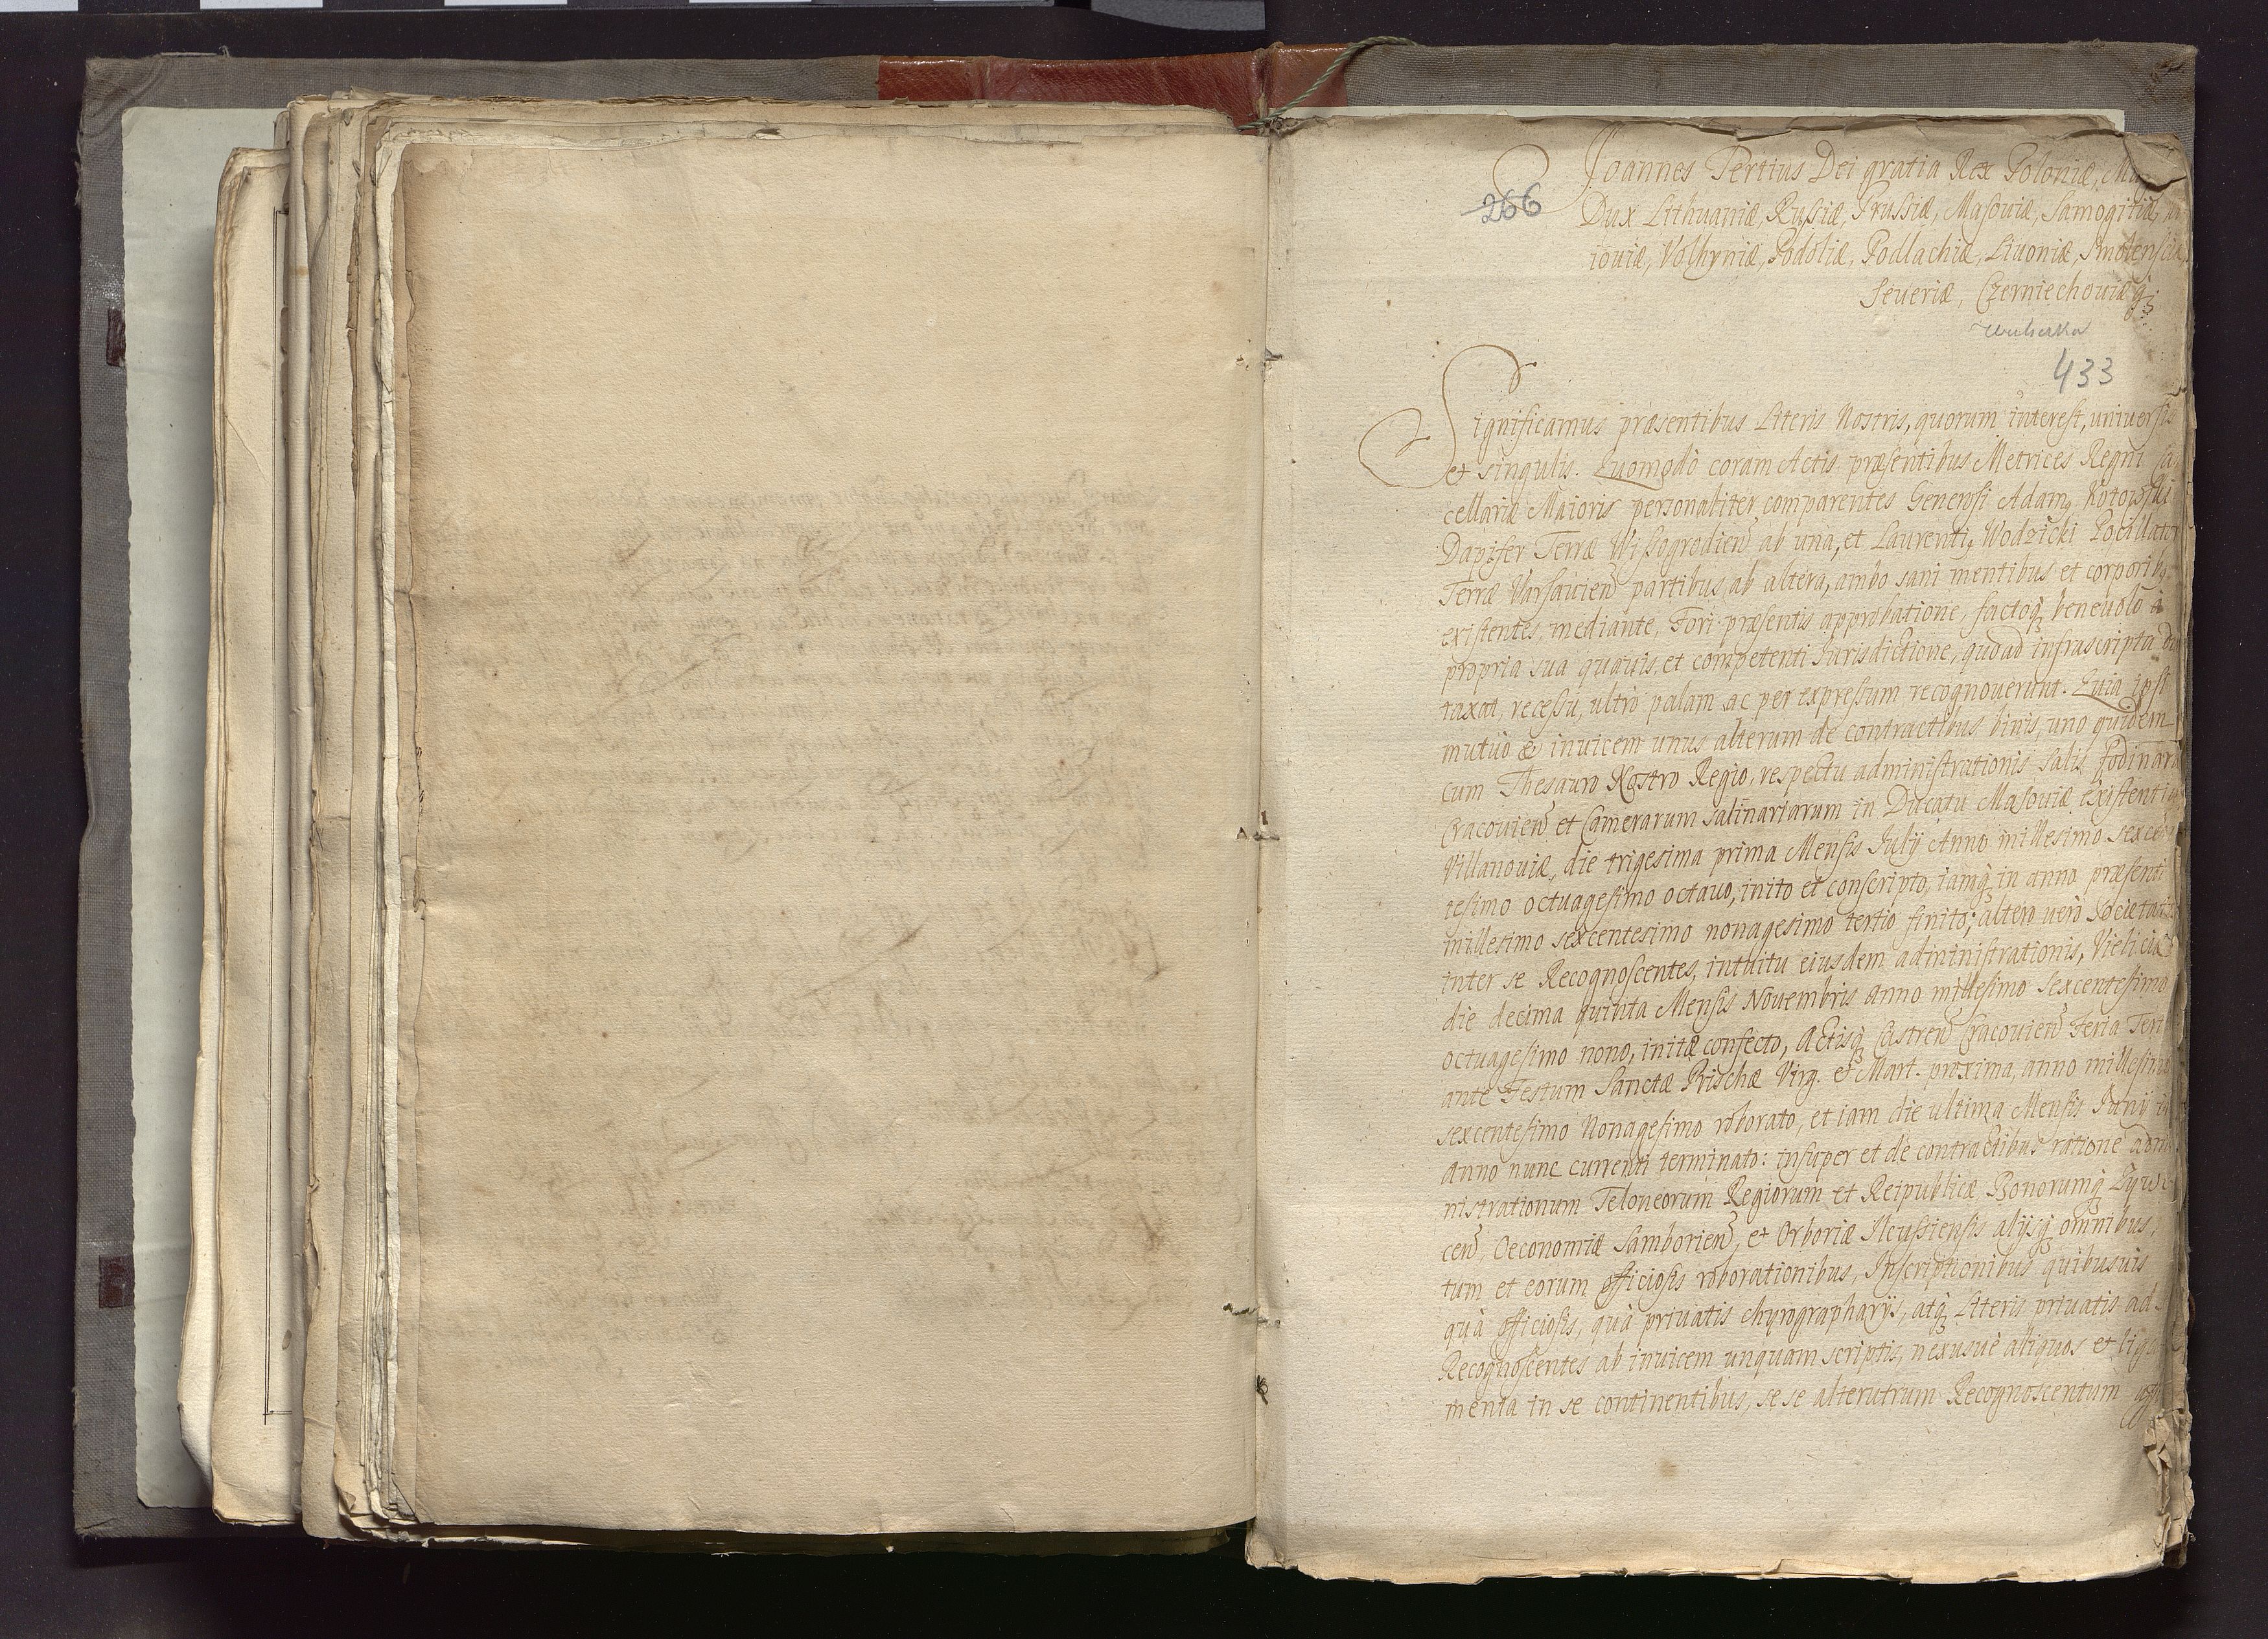 Joannes Tertius Dei gratia Rex Poloniæ,
266
Dux Lithuaniæ, Rußiæ, Prussiæ, Masouiæ, Samogitiæ,
iouiæ, Volhyniæ, Podoliæ, Podlachiæ, Liuoniæ, Smolensciæ,
Seueriæ, Czerniechouiæq3
433
Significamus præsentibus Literis Nostris, quorum interest, uniuersis
et singulis. Quomodò coram Actis præsentibus Metrices Regni Can
cellariæ Maioris personaliter comparentes Generosi Adamꝯ Kotowski
Dapifer Terræ Wißogrodien̄ ab una, et Laurentiꝯ Wodzicki Pocillator
Terræ Varsauien̄ partibus ab altera, ambo sani mentibus et corporibꝯ
existentes, mediante, Fori præsentis approbatione, factoq3 beneuolo à
propria sua quauis, et competenti Jurisdictione, quòad infrascripta dun
taxat, recessu, ultrò palam ac per expreßum recognouerunt. Quia ipsi
mutuò & inuicem unus alterum de contractibus binis, uno quidem
cum Thesauro Nostro Regio, respectu administrationis Salis fodinarū
Cracouien̄ et Camerarum Salinariarum in Ducatu Masouiæ existentiū
Villanouiæ, die trigesima prima Mensis Julij Anno millesimo sexcen
tesimo octuagesimo octauo, inito et conscripto, iamq3 in anno præsenti
millesimo sexcentesimo nonagesimo tertio finito; altero verò Societatis
inter se Recognoscentes, intuitu eiusdem administrationis, Vieliciæ
die decima quinta Mensis Nouembris anno millesimo sexcentesimo
octuagesimo nono, initæ confecto, Actisq3 Castren̄ Cracouien̄ Feria Terti
ante Festum Sanctæ Prischæ Virg. et Mart. proxima, anno millesimo
sexcentesimo Nonagesimo roborato, et iam die ultima Mensis Junij in
Anno nunc currenti terminato: insuper et de contractibus ratione admi
nistrationum Teloneorum Regiorum et Reipublicæ, Bonorumq3 Zywie
cen̄, Oeconomiæ Samborien̄, et Orboriæ Ilcussiensis alijsq3 omnibus,
tum et eorum officiosis roborationibus, Inscriptionibus quibusuis
quà officiosis, quà priuatis chyrographarijs, atq3 Literis priuatis ad
Recognoscentes ab inuicem unquam scriptis, nexusuè aliquos et liga
menta in se continentibus, sese alterutrum Recognoscentum